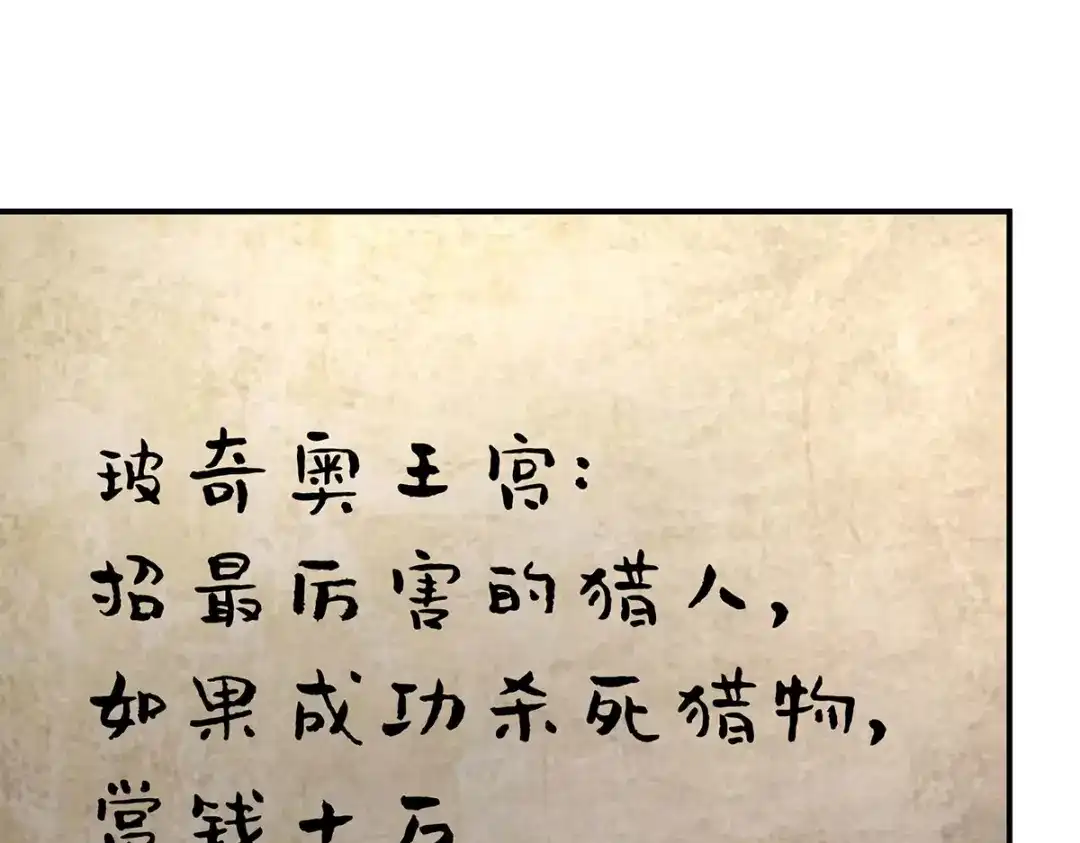 玻奇奥王宫:
招最厉害的猎人,
如果成功杀死猎物,
赏钱十万